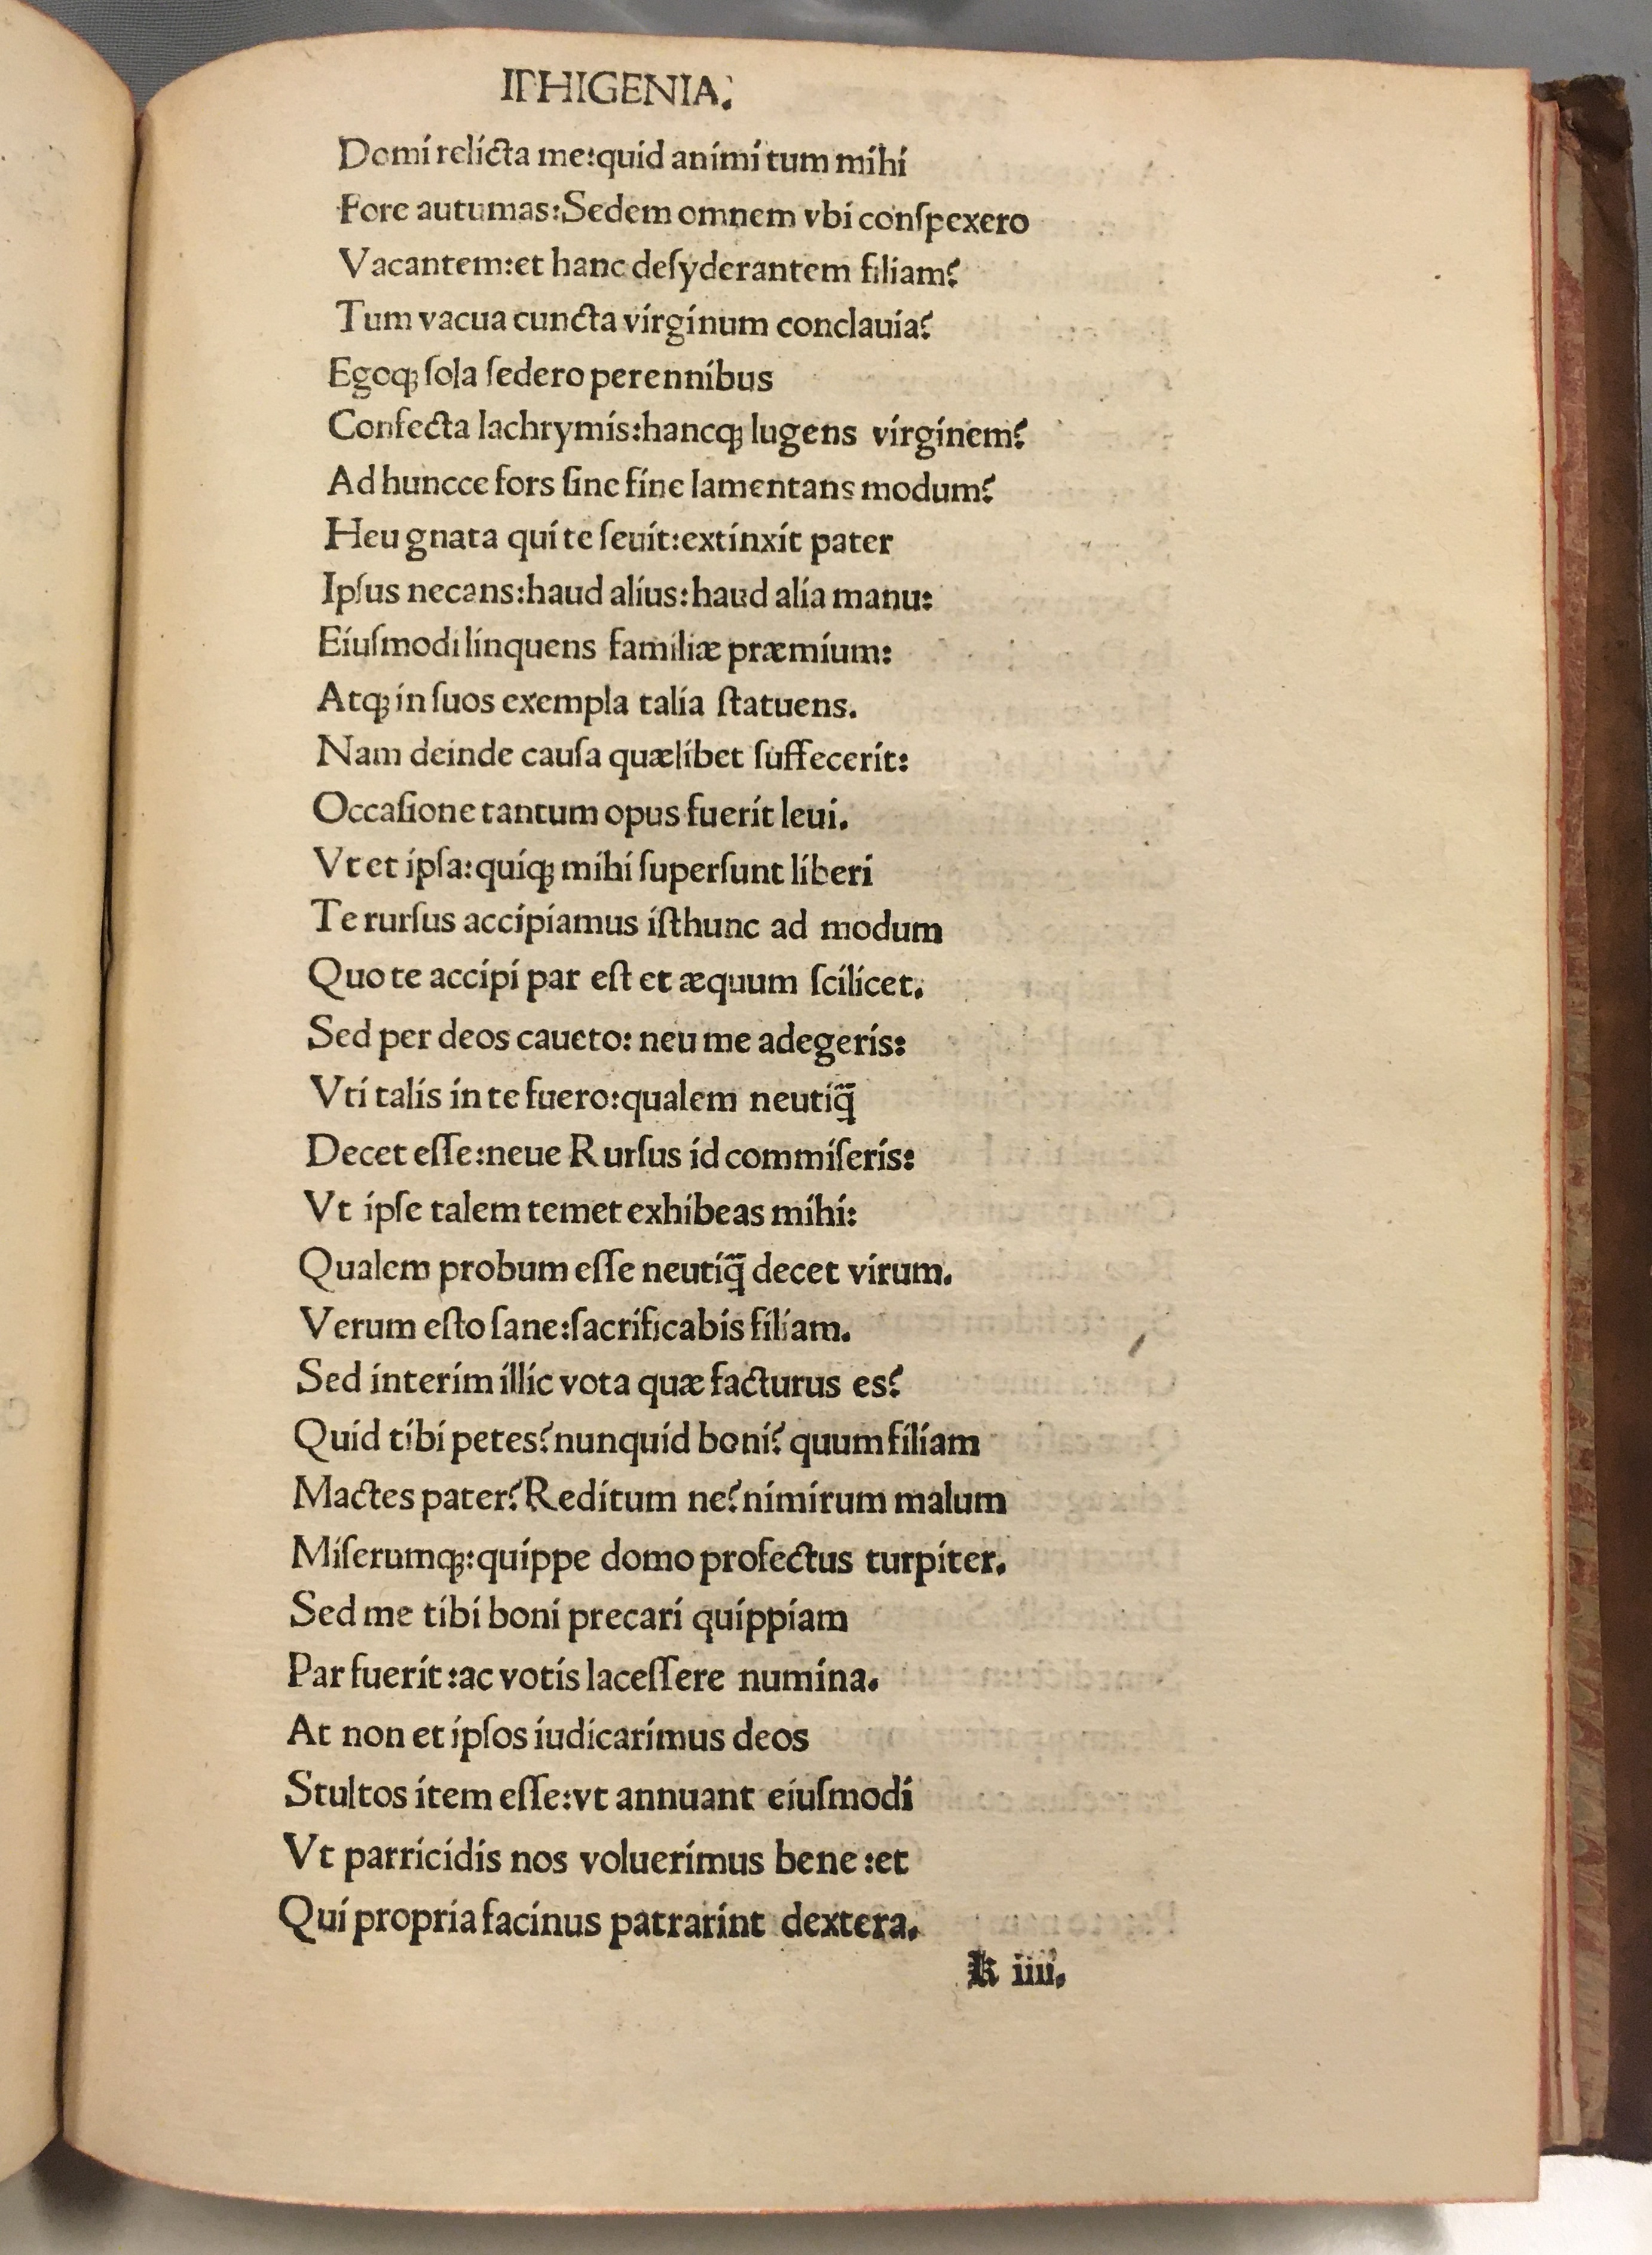 IPHIGENIA.
Domi relicta me:quid animi tum mihi
Fore autumas:Sedem omnem vbi conſpexero
Vacantem:et hanc deſyderantem filiam?
Tum vacua cuncta virginum conclauia?
Egoqꝫ ſola ſedero perennibus
Confecta lachrymis:hancqꝫ lugens virginem?
Ad huncce fors ſine fine lamentans modum?
Heu gnata qui te ſeuit:extinxit pater
Ipſus necans:haud alius:haud alia manu:
Eiuſmodi linquens familiæ præmium:
Atqꝫ in ſuos exempla talia ſtatuens.
Nam deinde cauſa quælibet ſuffecerit:
Occaſione tantum opus fuerit leui.
Vt et ipſa:quiqꝫ mihi ſuperſunt liberi
Te rurſus accipiamus iſthunc ad modum
Quo te accipi par eſt et æquum ſcilicet.
Sed per deos caueto: neu me adegeris:
Vti talis in te fuero:qualem neutiq̄
Decet eſſe:neue Rurſus id commiſeris:
Vt ipſe talem temet exhibeas mihi:
Qualem probum eſſe neutiq̄ decet virum.
Verum eſto ſane:ſacrificabis filiam.
Sed interim illic vota quæ facturus es?
Quid tibi petes?nunquid boni? quum filiam
Mactes pater?Reditum ne?nimirum malum
Miſerumqꝫ:quippe domo profectus turpiter.
Sed me tibi boni precari quippiam
Par fuerit:ac votis laceſſere numina.
At non et ipſos iudicarimus deos
Stultos item eſſe:vt annuant eiuſmodi
Vt parricidis nos voluerimus bene:et
Qui propria facinus patrarint dextera.
K iiii.